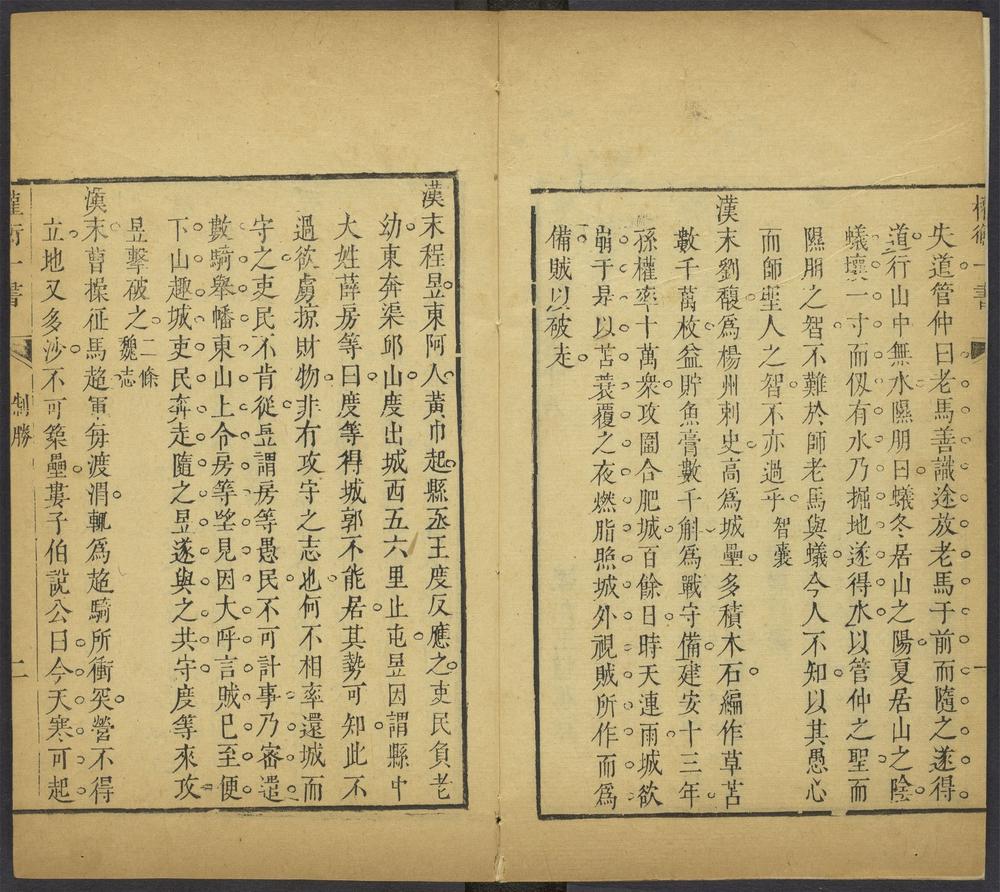 失道管仲曰老馬善識途放老馬于前而隨之遂得
道行山中無水隰朋曰蟻冬居山之陽夏居山之陰
蟻壤一寸而仭有水乃掘地遂得水以管仲之聖而
隰朋之智不難於師老馬與蟻今人不知以其愚心
而師聖人之智不亦過乎 智囊
漢末劉馥為楊州刺史高為城壘多積木石編作草苫
數千萬枚益貯魚膏數千斛為戰守備建安十三年
孫權率十萬衆攻圍合肥城百餘日時天連雨城欲
崩于是以苫蓑覆之夜燃脂照城外視賊所作而為
備賊以破走
漢末程昱東阿人黃巾起縣丞王度反應之吏民負老
幼東奔渠邱山度出城西五六里止屯昱因謂縣中
大姓薛房等曰度等得城郭不能居其勢可知此不
過欲虜掠財物非有攻守之志也何不相率還城而
守之吏民不肯從昱謂房等愚民不可計事乃密遣
數騎舉幡東山上令房等望見因大呼言賊已至便
下山趣城吏民奔走隨之昱遂與之共守度等來攻
昱擊破之 二條魏志
漢末曹操征馬超軍每渡渭輒為超騎所衝突營不得
立地又多沙不可築壘婁子伯說公曰今天寒可起
制勝
二